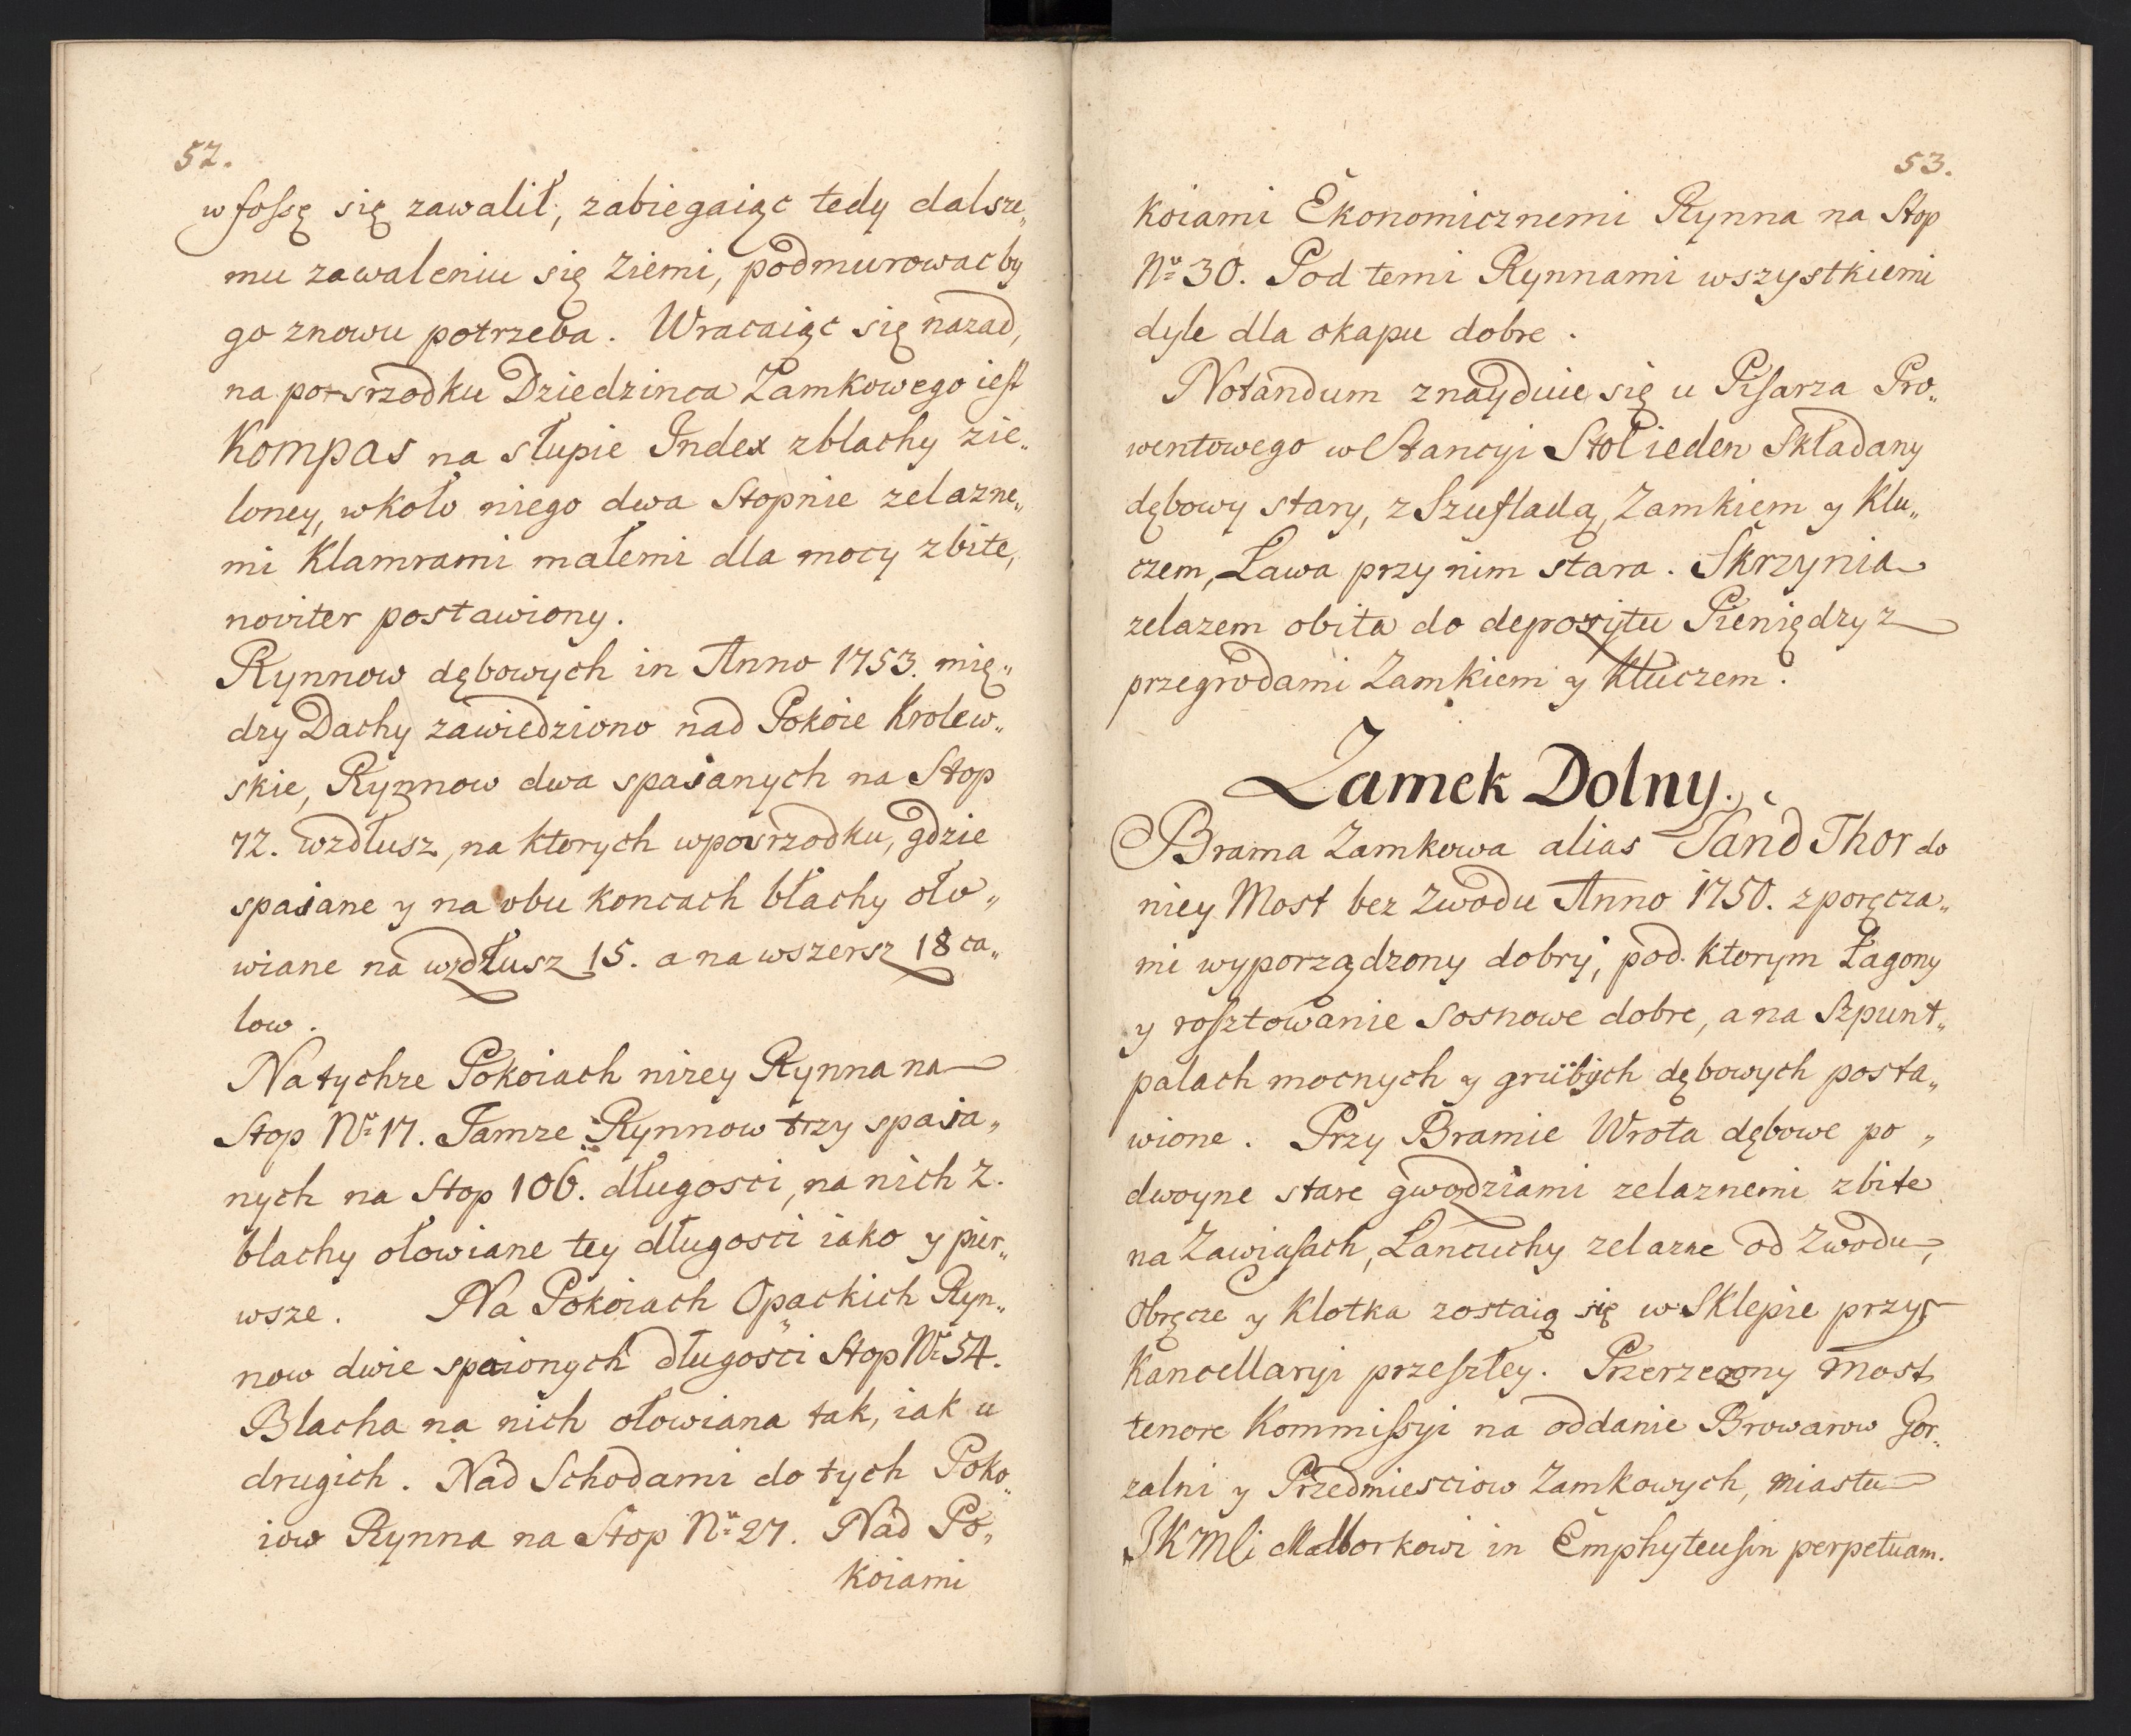 52.
w fossę się zawalił, zabiegaiąc tedy dalsze„
mu zawaleniu się Ziemi, podmurowac by
go znowu potrzeba. Wracaiąc się nazad,
na posrzodku Dziedzinca Zamkowego iest
Kompas na słupie Index z blachy zie„
loney, wkoło niego dwa Stopnie zelazne„
mi Klamrami małemi dla mocy zbite,
noviter postawiony.
Rynnow dębowych in Anno 1753. mię„
dzy Dachy zawiedziono nad Pokoie Krolew„
skie, Rynnow dwa spaianych na Stop
72. wzdłusz, na ktorych wposrzodku, gdzie
spaiane y na obu koncach błachy oło„
wiane na wzdłusz 15. a na wszersz 18 ca„
low.
Na tychze Pokoiach nizey Rynna na
Stop Nr̲o̲ 17. Tamze Rynnow trzy spaia„
nych na Stop 106. długosci, na nich 2.
blachy ołowiane tey długosci iako y pier„
wsze. Na Pokoiach Opackich Ryn„
now dwie spaionych długosci Stop Nro 54.
Blacha na nich ołowiana tak, iak u
drugich. Nad Schodami do tych Poko„
iow Rynna na Stop Nro 27. Nad Po„
koiami
53.
koiami Ekonomicznemi Rynna na Stop
Nro 30. Pod temi Rynnami wszystkiemi
dyle dla okapu dobre.
Notandum znayduie się u Pisarza Pro„
wentowego w Stancyi Stoł ieden Składany
dębowy stary, z Szufladą, Zamkiem y Klu„
czem, Ława przy nim stara. Skrzynia
zelazem obita do depozytu Pieniędzy z
przegrodami Zamkiem y Kluczem.
Zamek Dolny.
Brama Zamkowa alias Sand Thor do
niey Most bez Zwodu Anno 1750. z poręcza„
mi wyporządzony dobry, pod ktorym Łagony
y rosztowanie sosnowe dobre, a na Szpunt„
palach mocnych y grubych dębowych posta„
wione. Przy Bramie Wrota dębowe po„
dwoyne stare gwozdziami zelaznemi zbite
na Zawiasach, Łancuchy zelazne od Zwodu,
Obręcze y Klotka zostaią się w Sklepie przy
Kancellaryi przeszłey. Przerzeczony Most
tenore Kommissyi na oddanie Browarow Gor„
zalni y Przedmiesciow Zamkowych, Miastu
JKMci Malborkowi in Emphyteusin perpetuam.